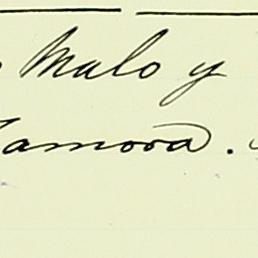 Malo y
Zamora.